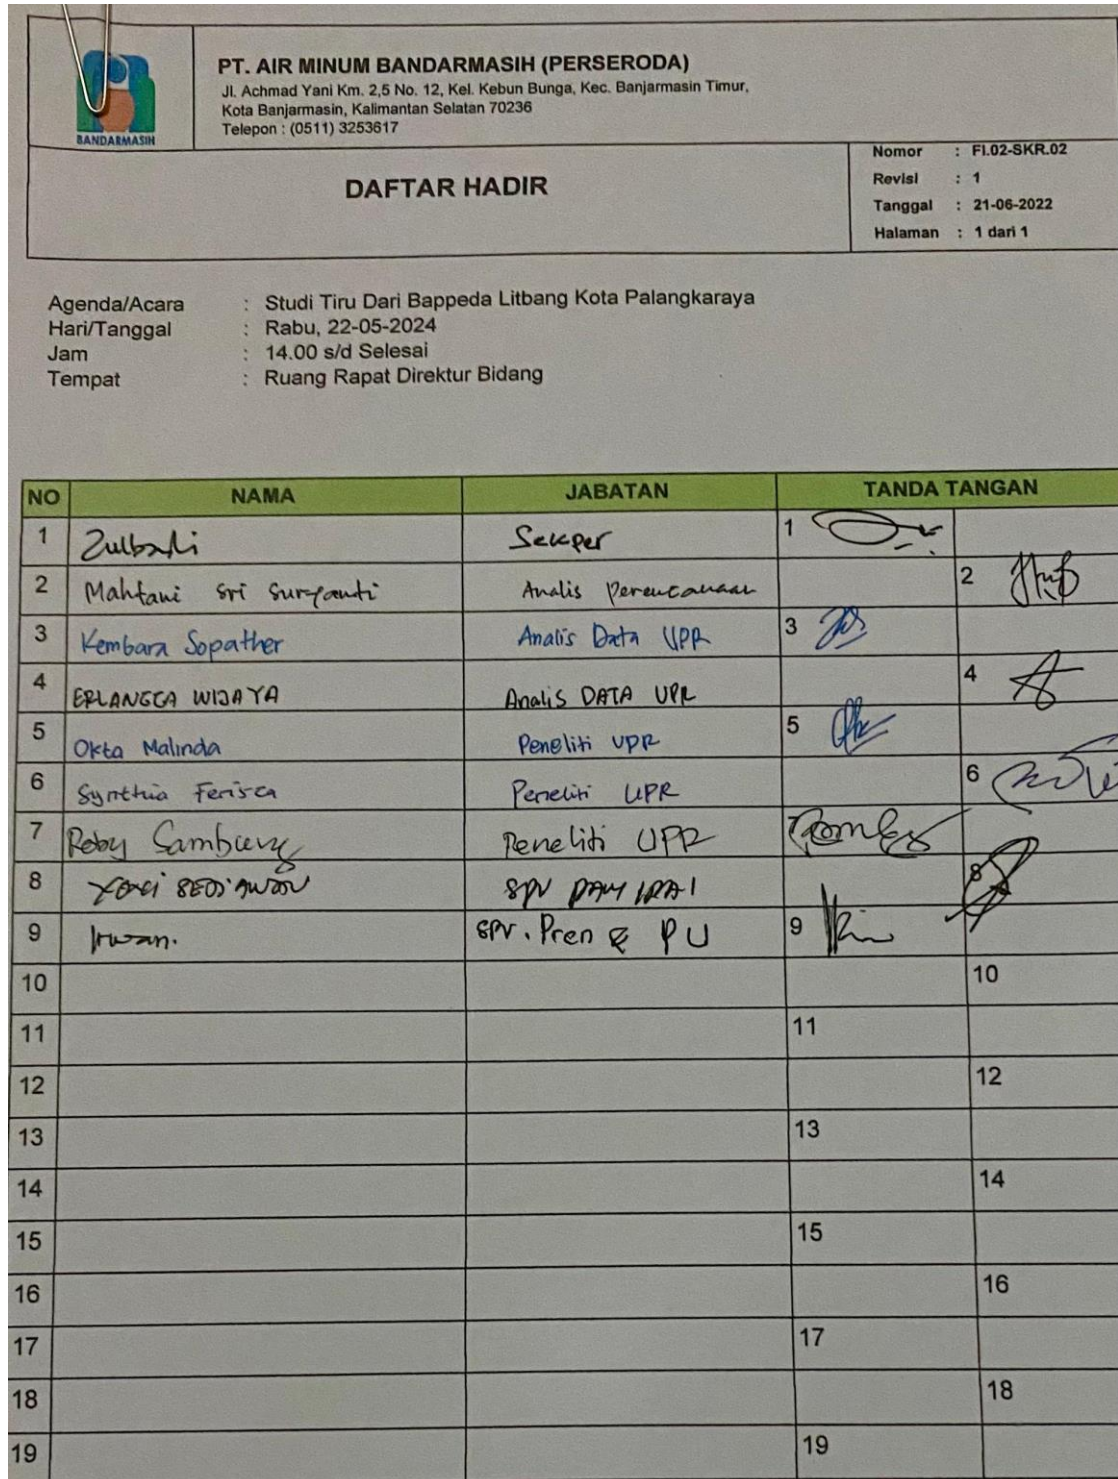 BANDARMASIH
PT. AIR MINUM BANDARMASIH (PERSERODA)
Jl. Achmad Yani Km. 2,5 No. 12, Kel. Kebun Bunga, Kec. Banjarmasin Timur,
Kota Banjarmasin, Kalimantan Selatan 70236
Telepon : (0511) 3253617
DAFTAR HADIR
Nomor : FI.02-SKR.02
Revisi : 1
Tanggal : 21-06-2022
Halaman : 1 dari 1
Agenda/Acara : Studi Tiru Dari Bappeda Litbang Kota Palangkaraya
Hari/Tanggal : Rabu, 22-05-2024
Jam : 14.00 s/d Selesai
Tempat : Ruang Rapat Direktur Bidang
NO NAMA JABATAN TANDA TANGAN
1 Sekper 1
2 Mahfani Sri Suryanti Analis Perencanaan 2
3 Kembara Sopather Analis Data UPR 3
4 ERLANGGA WIJAYA Analis DATA UPR 4
5 Okta Malinda Peneliti UPR 5
6 Synthia Ferisca Peneliti UPR 6
7 Roby Sambung Peneliti UPR
8 SPV 8
9 Irwan. SPV. Pren & PU 9
10 10
11 11
12 12
13 13
14 14
15 15
16 16
17 17
18 18
19 19